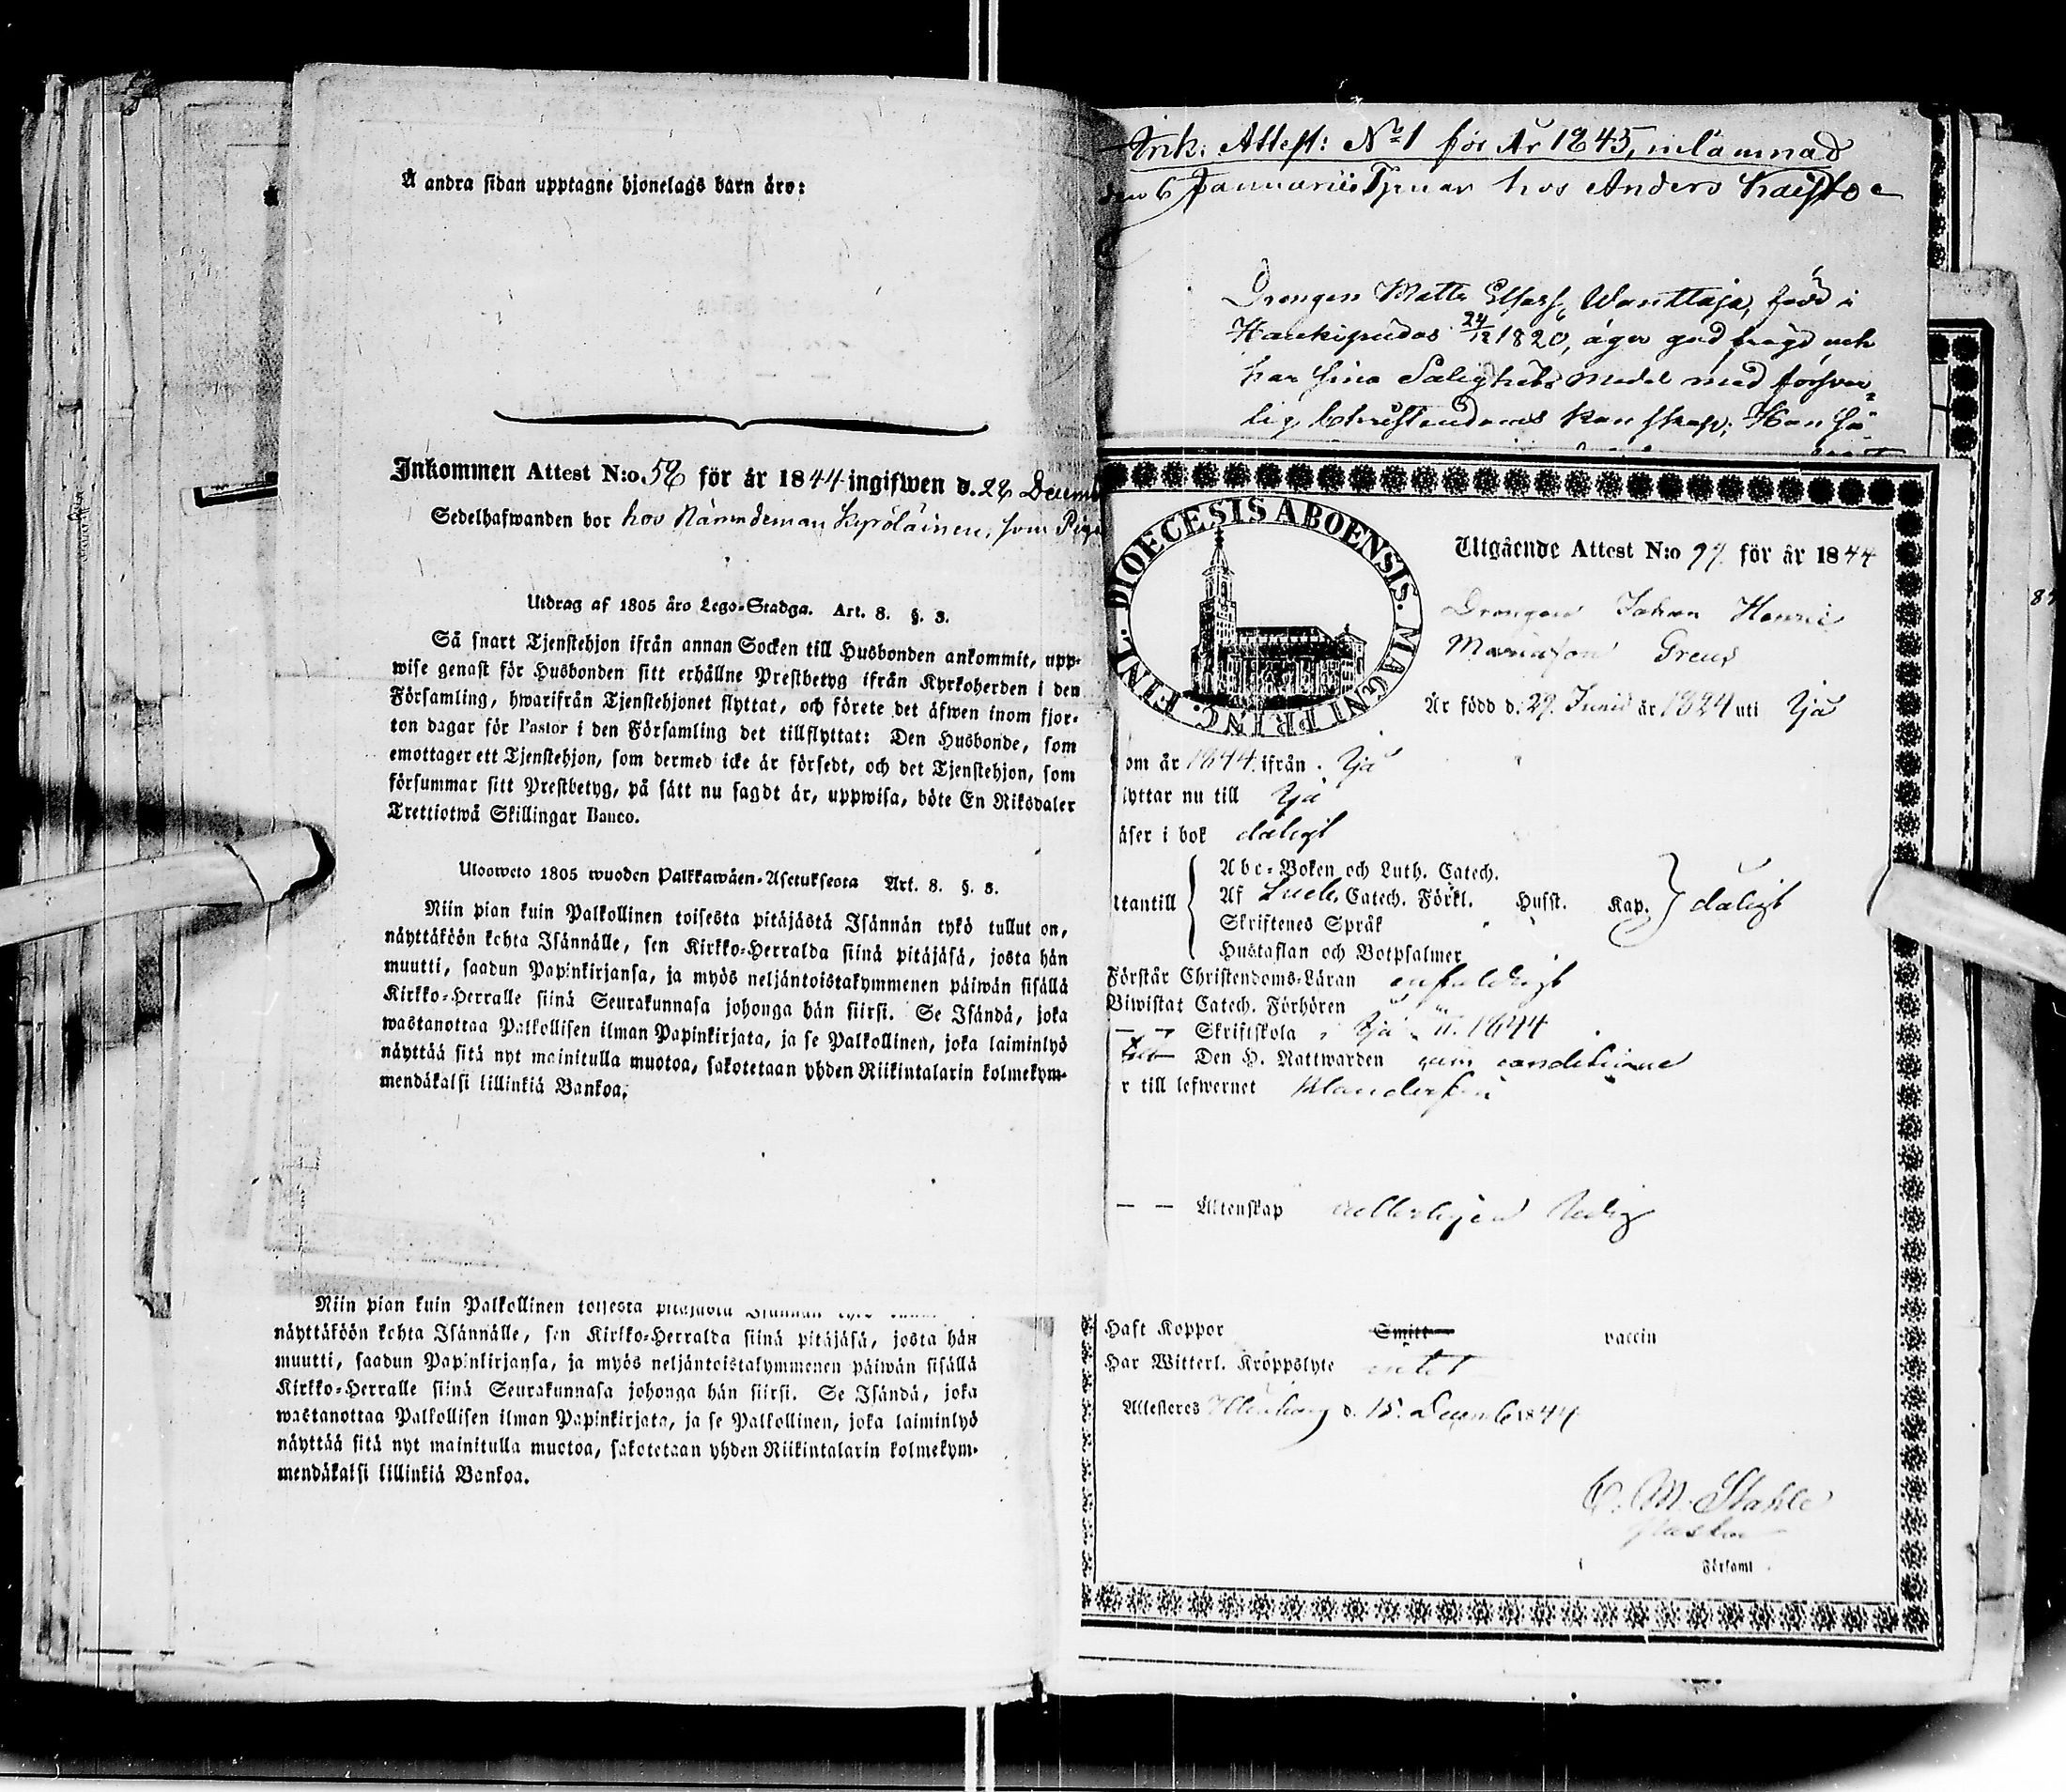 Å andra sidan upptagne hjonelags barn äro:
Inkommen Attest N:o 58 för år 1844 ingifwen d. 28 Decemb
Sedelhafwanden bor hos Nämndeman Kyröläinen, som Piga
Utdrag af 1805 års Lego-Stadga. Art. 8. §. 3.
Så snart Tjenstehjon ifrån annan Socken till Husbonden ankommit, upp-
wise genast för Husbonden sitt erhållne Prestbetyg ifrån Kyrkoherden i den
Församling, hwarifrån Tjenstehjonet flyttat, och förete det äfwen inom fjor-
ton dagar för Pastor i den Församling det tillflyttat: Den Husbonde, som
emottager ett Tjenstehjon, som dermed icke är försedt, och det Tjenstehjon, som
försummar sitt Prestbetyg, på sätt nu sagdt är, uppwisa, böte En Riksdaler
Trettiotwå Skillingar Banco.
Uloosweto 1805 wuoden Palkkawäen-Asetuksesta Art. 8. §. 3.
Niin pian kuin Palkollinen toisesta pitäjästä Isännän tykö tullut on,
näyttäköön kohta Isännälle, sen Kirkko-Herralda siinä pitäjäsä, josta hän
muutti, saadun Papinkirjansa, ja myös neljäntoistakymmenen päiwän sisällä
Kirkko-Herralle siinä Seurakunnasa johonga hän siirsi. Se Isändä, joka
wastanottaa Palkollisen ilman Papinkirjata, ja se Palkollinen, joka laiminlyö
näyttää sitä nyt mainitulla muotoa, sakotetaan yhden Riikintalarin kolmekym-
mendäkaksi killinkiä Bankoa.
Niin pian kuin Palkollinen toisesta pitäjästä Isännän tykö
näyttäköön kohta Isännälle, sen Kirkko-Herralda siinä pitäjäsä, josta hän
muutti, saadun Papinkirjansa, ja myös neljäntoistakymmenen päiwän sisällä
Kirkko-Herralle siinä Seurakunnasa johonga hän siirsi. Se Isändä, joka
wastanottaa Palkollisen ilman Papinkirjata, ja se Palkollinen, joka laiminlyö
näyttää sitä nyt mainitulla muotoa, sakotetaan yhden Riikintalarin kolmekym-
mendäkaksi killinkiä Bankoa.
Ink: Attest: No 1 för År 1845, inlämnad
den 6 Januarii Tjenar hos Anders Kaisto
Drengen Matts Wanttaja, född i
Haukipudas 24/12 1820, äger god frägd och
har sina Salighets medel med försvar-
lig Christendoms kunskap; Han
DIOECESIS ABOENSIS. MAGNI PRINC. FINL.
Utgående Attest N:o 97 för år 1844
Drengen Johan Henric
Mariæson Greus
Är född d. 29. Junii år 1824 uti Ijå
om år 1844 ifrån Ijå
lyttar nu till Ijå
äser i bok dåligt
Abc-Boken och Luth. Catech.
ttantill Af Luth. Catech. Förkl. Husst. Kap. dåligt
Skriftenes Språk
Hustaflan och Botpsalmer
Förstår Christendoms-Läran enfaldigt
Biwistat Catech. Förhören
— — Skriftskola i Ijå 1844
Den H. Nattwarden cum conditione
r till lefwernet klanderfri
— — Äktenskap ledig
Haft Koppor Smitt vaccin
Har Witterl. Kroppslyte intet
Attesteras Uleåborg d. 15. Decemb 1844
C. M. Stahle
Pastor
Församl.